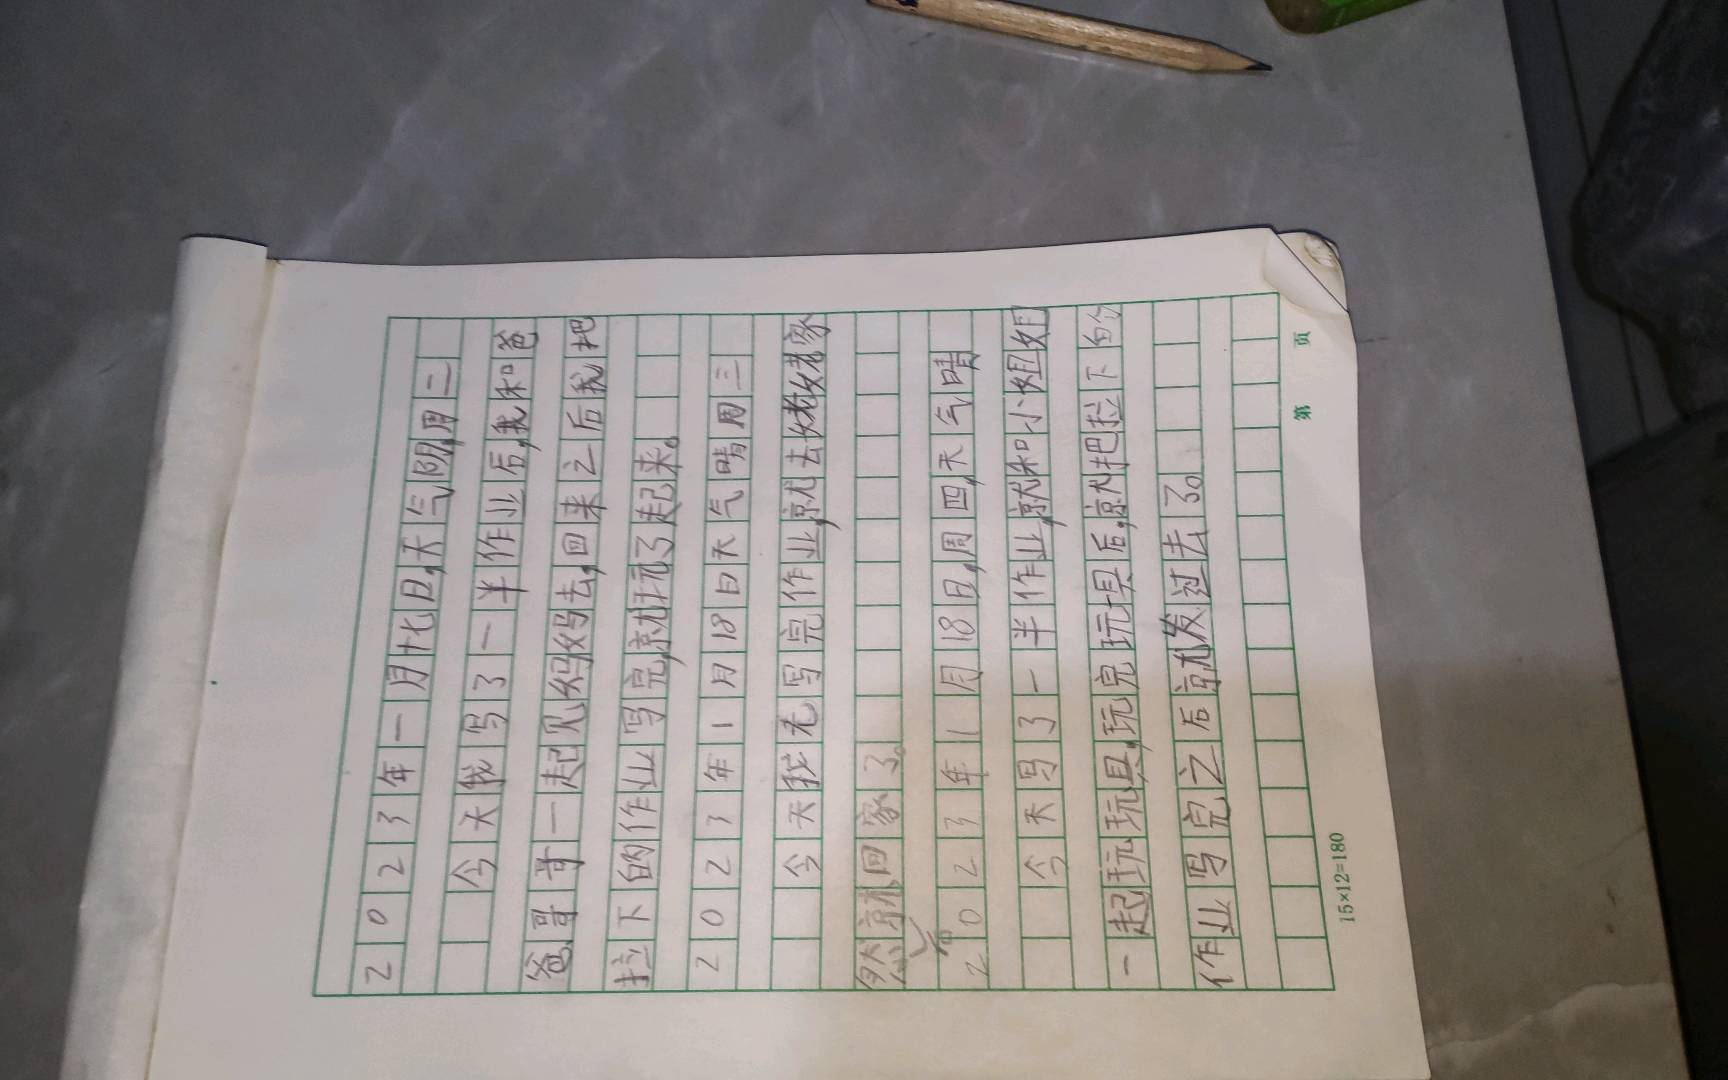 2023年一月十七日,天气阴,周二
今天我写了一半作业后,我和爸
爸哥哥一起见妈妈去,回来之后我把
拉下的作业写完,就玩了起来。
2023年1月18日天气晴周三
今天我先写完作业,就去姥姥家
然后就回家了。
2023年1月18日,周四,天气晴
今天写了一半作业,就和小姐姐
一起玩玩具,玩完玩具后,就把拉下的
作业写完之后就发过去了。
15×12=180
第 页